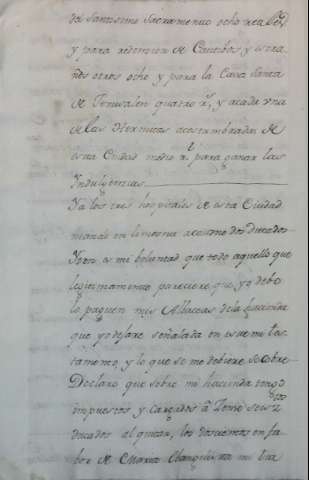 del Santissimo Sacramento ocho reales
y para redencion de Cautibos y
otros ocho y para la Casa Santa
de Jerusalen quatro rs, y acada vna
de las Hermitas acostumbradas de
esta Ciudad medio rl para ganar las
Indulgencias
Ya los tres hospitales de esta Ciudad
mando en limosna acadauno dos ducados
Yten es mi boluntad que todo aquello que
legitimamente pareciere que yo debo
lo paguen mis Albaceas dela hacienda
que yo dejare señalada en este mi tes
tamento, y lo que se me debiere se cobre
Declaro que sobre mi hacienda tengo
impuestos y cargados â Zenso seis
ducados al quitar, los doscientos en fa
bor de Maria mi tia